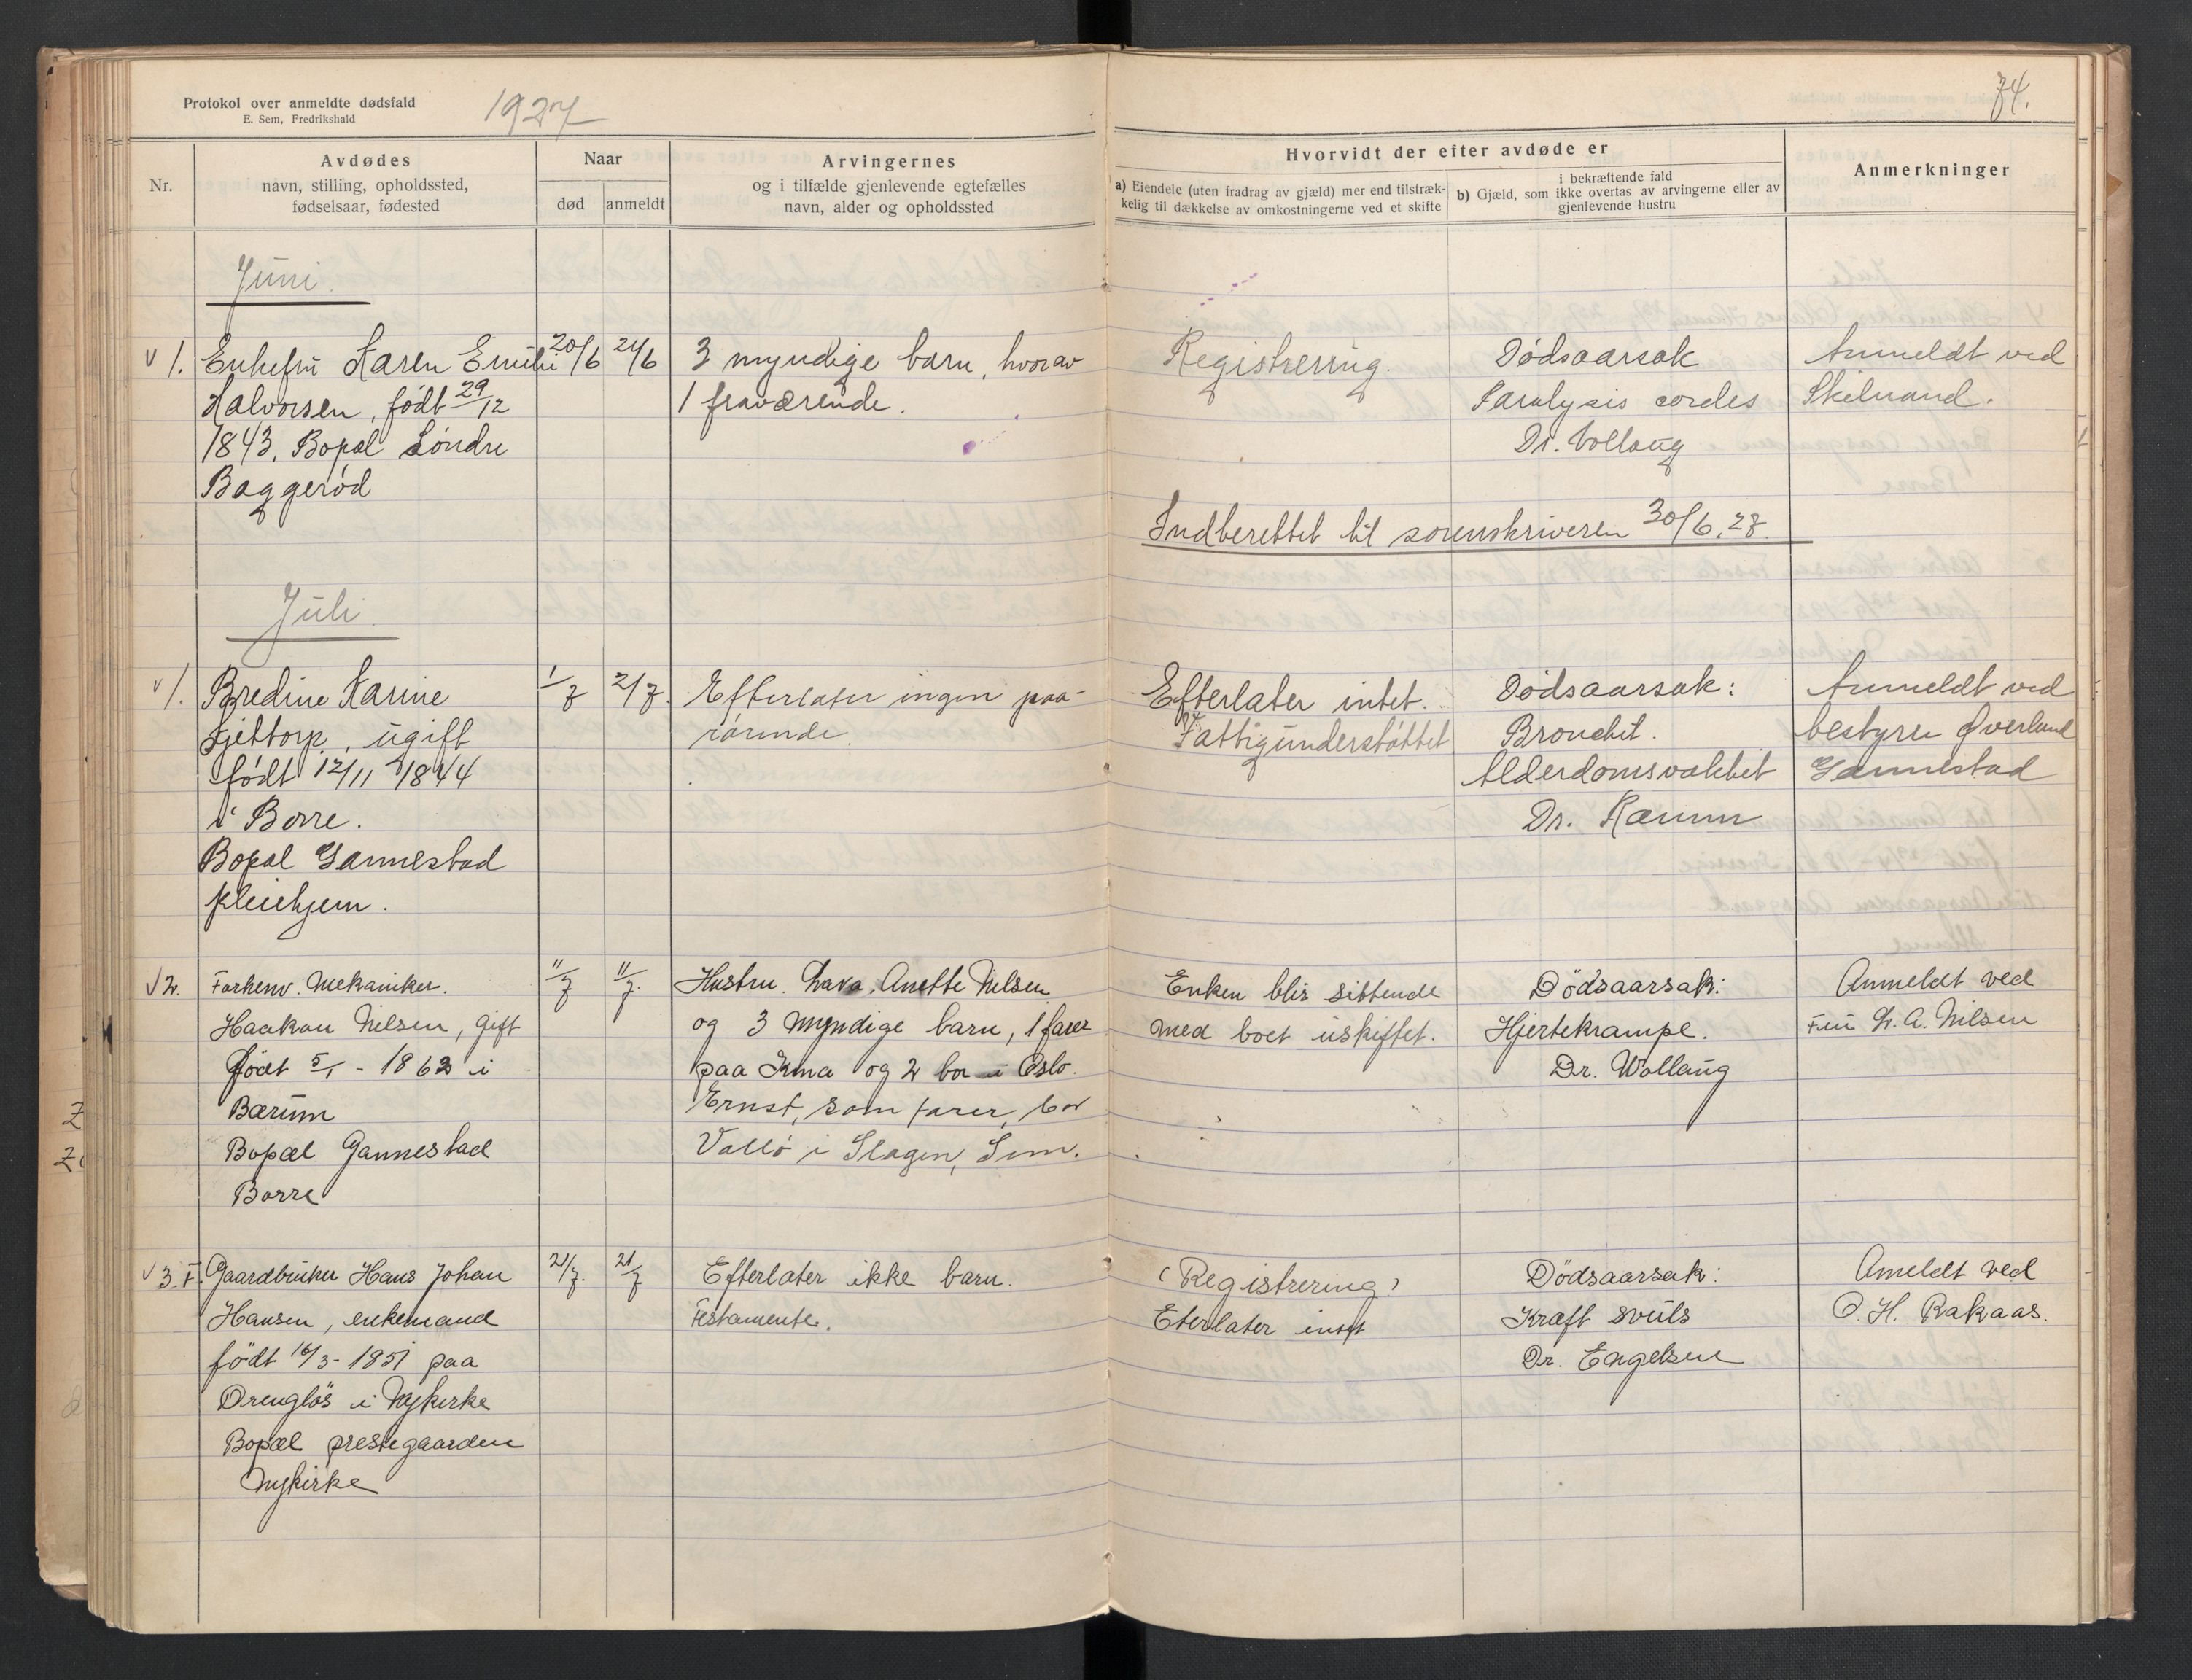 Protokol over anmeldte dødsfald
E. Sem, Fredrikshald
1927
74.
Nr.
Avdødes
navn, stilling, opholdssted,
fødselsaar, fødested
Naar
død
anmeldt
Arvingernes
og i tilfælde gjenlevende egtefælles
navn, alder og opholdssted
Hvorvidt der efter avdøde er
a) Eiendele (uten fradrag av gjæld) mer end tilstræk-
kelig til dækkelse av omkostningerne ved et skifte
i bekræftende fald
b) Gjæld, som ikke overtas av arvingerne eller av
gjenlevende hustru
Anmerkninger
Juni
v 1.
Enkefru Karen Emilie
Halvorsen, født 29/12
1843. Bopæl Søndre
Baggerød
20/6
21/6
3 myndige barn, hvorav
1 fraværende.
Registrering.
Dødsaarsak
Paralysis cordes
Dr. Vollaug
Anmeldt ved
Indberettet til sorenskriveren 30/6.27.
Juli
v 1.
Bredine Karine
født 12/11 1844
i Borre.
Bopæl Gannestad
pleiehjem.
1/7
2/7.
Efterlater ingen paa-
rørende.
Efterlater intet.
Fattigunderstøttet
Dødsaarsak:
Bronchit.
Alderdomsvakhet
Dr. Ramm
Anmeldt ved
bestyrer Øverland
Gannestad
v 2.
Forhenv. Mekaniker.
Haakon Nilsen, gift
født 5/1 - 1862 i
Bærum
Bopæl Gannestad
Borre
11/7
11/7.
Hustru. Lava. Anette Nilsen
og 3 myndige barn, 1 farer
paa Kina og 2 bor i Oslo.
Ernst, som farer, bor
Vallø i Slagen, Sem.
Enken blir sittende
med boet uskiftet.
Dødsaarsak:
Hjertekrampe.
Dr. Wollaug
Anmeldt ved
Fru L. A. Nilsen
v 3. F.
Gaardbruker Hans Johan
Hansen, enkemand
født 16/3 - 1851 paa
Drengløs i Nykirke
Bopæl prestegaarden
Nykirke
21/7.
21/7
Efterlater ikke barn.
Testamente.
(Registrering)
Eterlater intet
Dødsaarsak:
Kræft svuls
Dr. Engelsen
Ameldt ved
O. H. Rakaas.